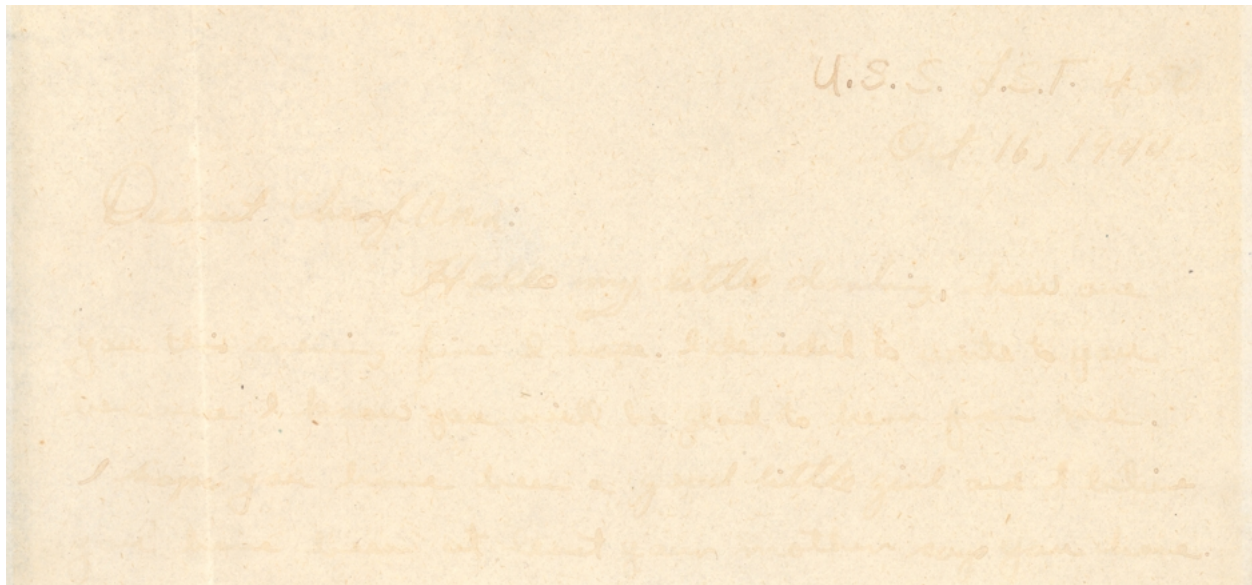 U.S.S. L.S.T. 450
Oct 16, 194
Dearest Cheryl Ann:
Hello my little darling, how are
you this evening fine I hope. I decided to write to you
because I know you will be glad to hear from me.
I hope you have been a good little girl and I
you have been